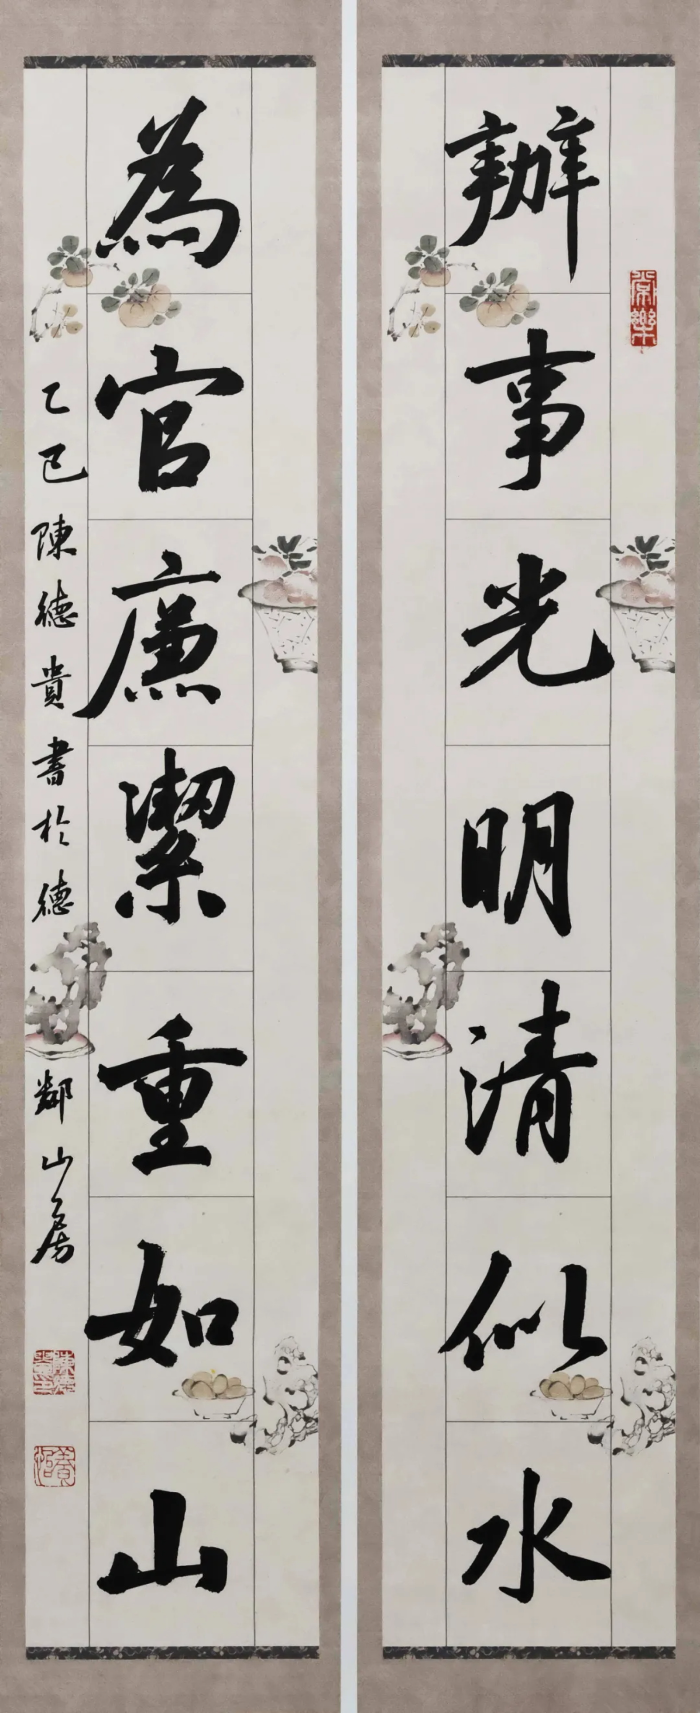 辦事光明清似水
為官廉潔重如山
乙巳陳德貴書於德鄰山房
常樂